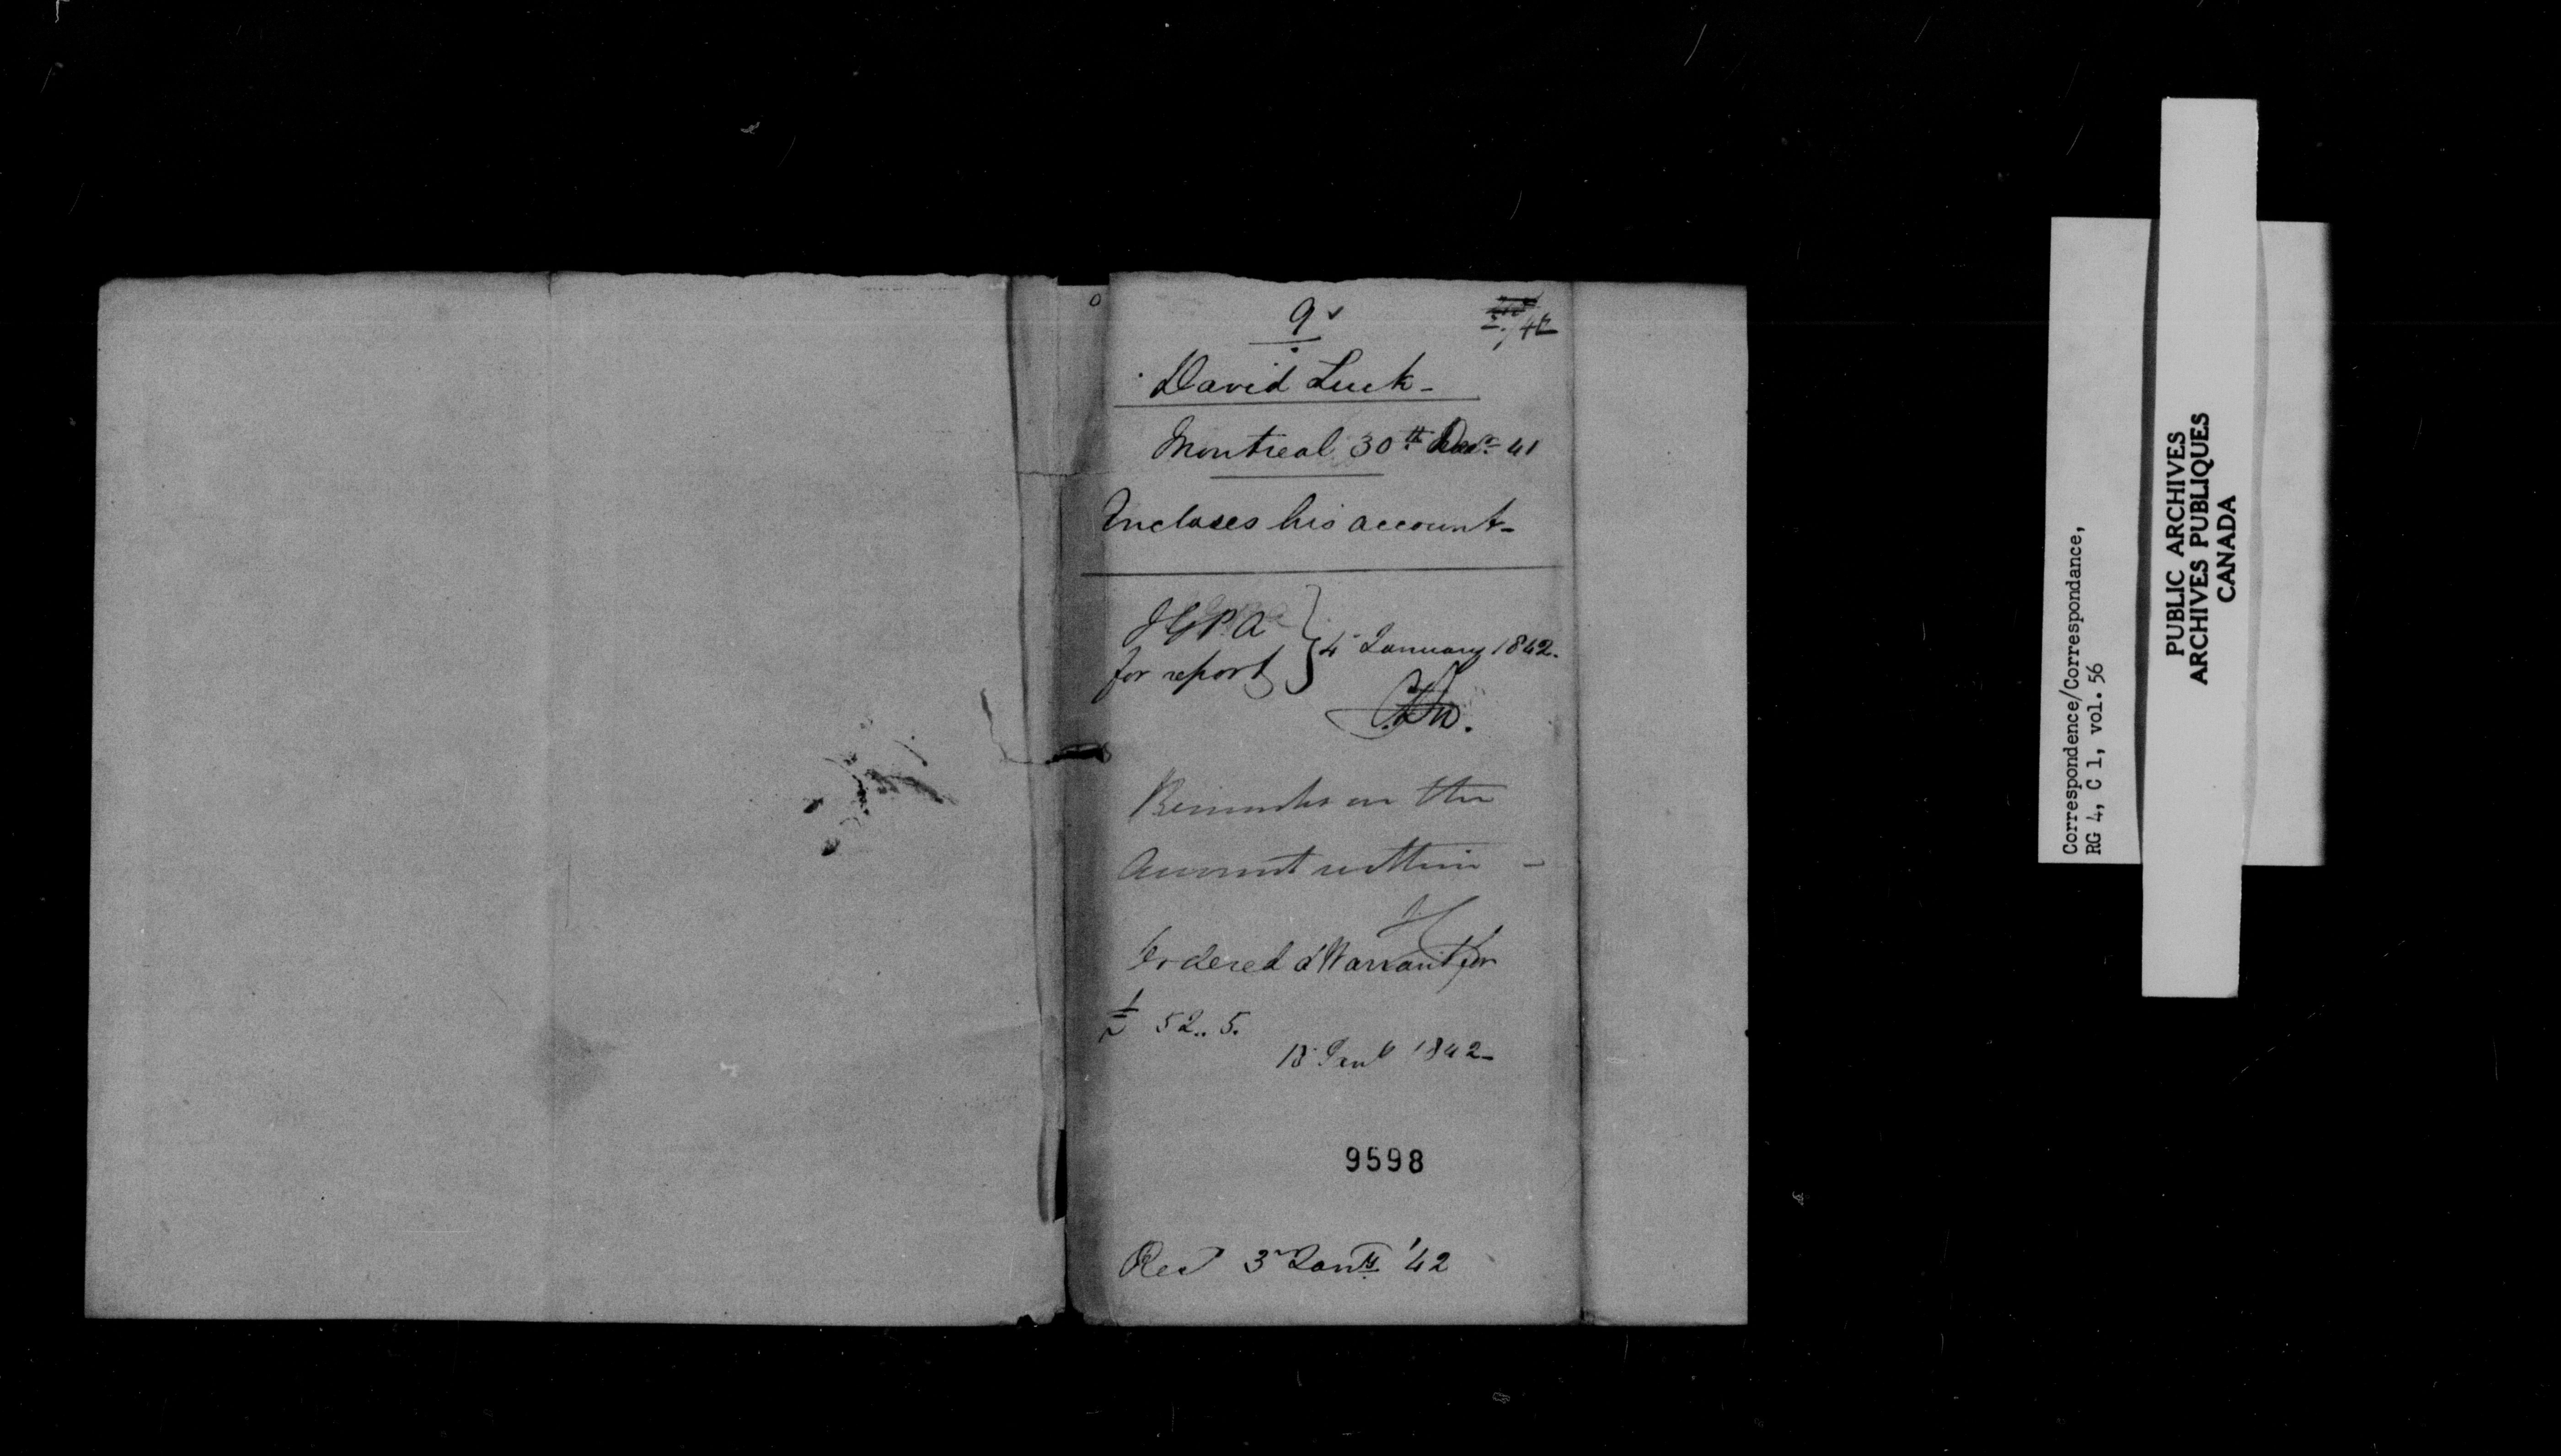 9
/42
David Luck-
Montreal 30th Decr 41
Incloses his account-
I G P A
for report } 4 January 1842.
Remarks on the
Account within -
Ordered a Warrant for
£ 52..5.
18 Jany 1842-
9598
Recd 3r Jany '42
Correspondence/Correspondance,
RG 4, C 1, vol. 56
PUBLIC ARCHIVES
ARCHIVES PUBLIQUES
CANADA